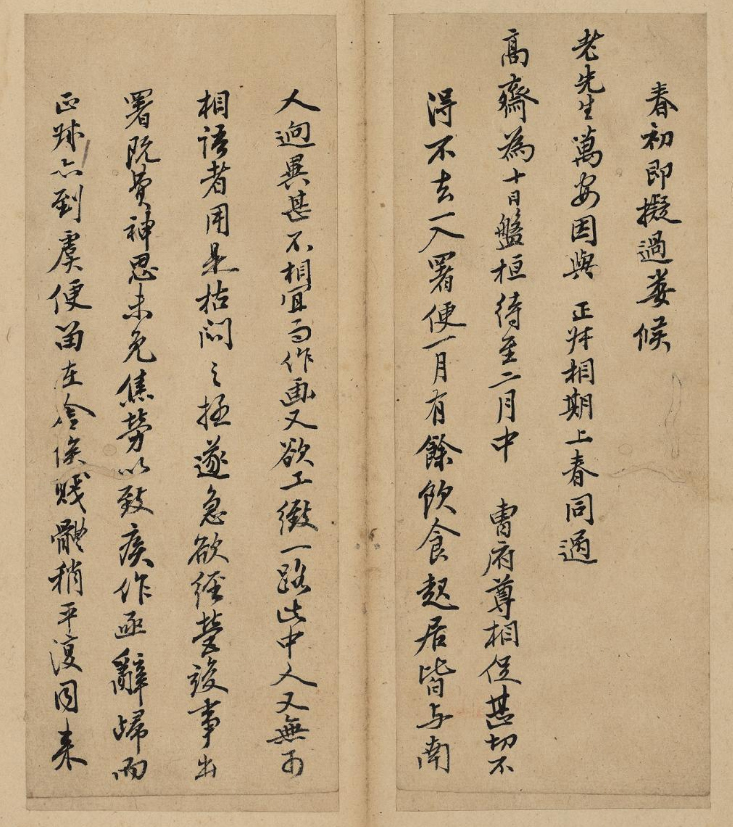 春初即擬過婁候
老先生萬安因與正叔相期上春同過
高齋為十日盤桓待至二月中曹府尊相促甚切不
得不去一入署便一月有餘飲食起居皆与南
人迥異甚不相宜而作画又欲工緻一路此中人又無可
相語者用是枯悶之極遂急欲經營竣事出
署既費神思未免焦勞以致疾作亟辭歸而
正叔亦到虞便留在舍俟賤體稍平復同来